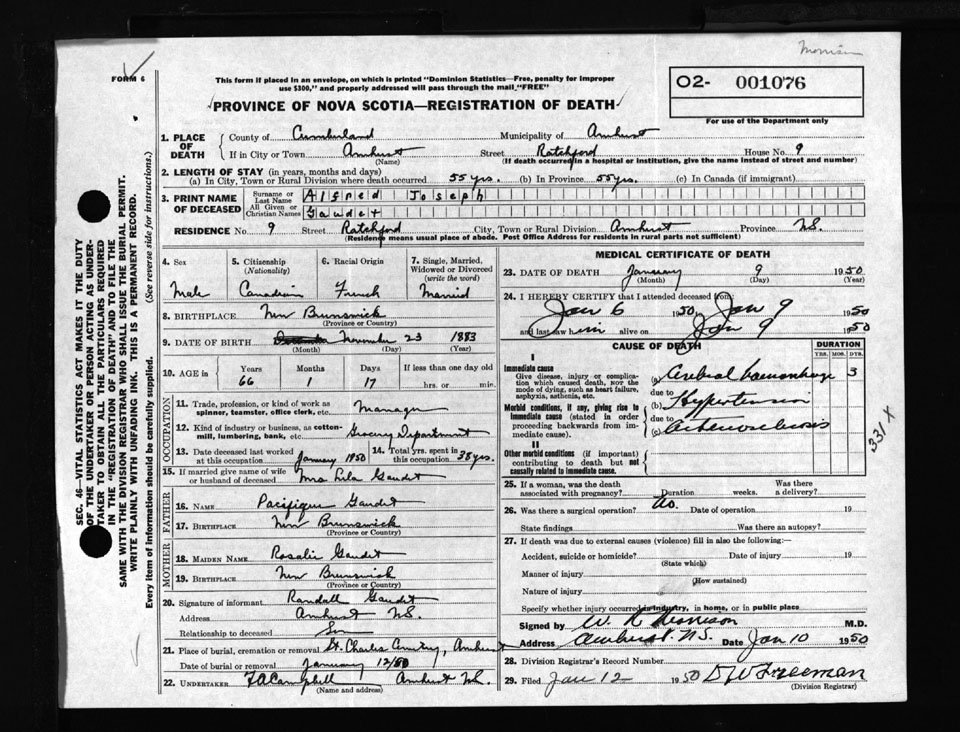 Morrison
FORM 6
This form if placed in an envelope, on which is printed "Dominion Statistics—Free, penalty for improper
use $300," and properly addressed will pass through the mail "FREE"
PROVINCE OF NOVA SCOTIA—REGISTRATION OF DEATH
O2- 001076
For use of the Department only
SEC. 46—VITAL STATISTICS ACT MAKES IT THE DUTY
OF THE UNDERTAKER OR PERSON ACTING AS UNDER-
TAKER TO OBTAIN ALL THE PARTICULARS REQUIRED
IN THE "REGISTRATION OF DEATH" AND TO FILE THE
SAME WITH THE DIVISION REGISTRAR WHO SHALL ISSUE THE BURIAL PERMIT.
WRITE PLAINLY WITH UNFADING INK. THIS IS A PERMANENT RECORD.
Every item of information should be carefully supplied. (See reverse side for instructions.)
1. PLACE OF DEATH
County of Cumberland Municipality of Amherst
If in City or Town Amherst Street Ratchford House No. 9
(Name) (If death occurred in a hospital or institution, give the name instead of street and number)
2. LENGTH OF STAY (in years, months and days)
(a) In City, Town or Rural Division where death occurred 55 yrs. (b) In Province 55 yrs. (c) In Canada (if immigrant)
3. PRINT NAME OF DECEASED
Surname or Last Name Alfred Joseph
All Given or Christian Names Gaudet
RESIDENCE No. 9 Street Ratchford City, Town or Rural Division Amherst Province N.S.
(Residence means usual place of abode. Post Office Address for residents in rural parts not sufficient)
4. Sex
Male
5. Citizenship (Nationality)
Canadian
6. Racial Origin
French
7. Single, Married, Widowed or Divorced (write the word)
Married
8. BIRTHPLACE New Brunswick
(Province or Country)
9. DATE OF BIRTH November 23 1883
(Month) (Day) (Year)
10. AGE in Years Months Days If less than one day old
66 1 17 hrs. or min.
OCCUPATION
11. Trade, profession, or kind of work as spinner, teamster, office clerk, etc. Manager
12. Kind of industry or business, as cotton-mill, lumbering, bank, etc. Grocery Department
13. Date deceased last worked at this occupation January 1950 14. Total yrs. spent in this occupation 38 yrs.
15. If married give name of wife or husband of deceased Mrs Lila Gaudet
FATHER
16. NAME Pacifique Gaudet
17. BIRTHPLACE New Brunswick
(Province or Country)
MOTHER
18. MAIDEN NAME Rosalie Gaudet
19. BIRTHPLACE New Brunswick
(Province or Country)
20. Signature of informant Randall Gaudet
Address Amherst N.S.
Relationship to deceased Son
21. Place of burial, cremation or removal St. Charles Cemetry, Amherst
Date of burial or removal January 12/50
22. UNDERTAKER F A Campbell Amherst N.S.
(Name and address)
MEDICAL CERTIFICATE OF DEATH
23. DATE OF DEATH January 9 1950
(Month) (Day) (Year)
24. I HEREBY CERTIFY that I attended deceased from
Jan 6 1950 Jan 9 1950
and last saw him alive on Jan 9 1950
CAUSE OF DEATH
DURATION
YRS. MOS. DYS.
I
Immediate cause
Give disease, injury or complication which caused death, NOT the mode of dying, such as heart failure, asphyxia, asthenia, etc.
(a) Cerebral haemorrhage 3
due to
Morbid conditions, if any, giving rise to immediate cause (stated in order proceeding backwards from immediate cause).
(b) Hypertension
(c) Arteriosclerosis
II
Other morbid conditions (if important) contributing to death but not causally related to immediate cause.
331 X
25. If a woman, was the death associated with pregnancy? Duration weeks. Was there a delivery?
26. Was there a surgical operation? No. Date of operation 19
State findings Was there an autopsy?
27. If death was due to external causes (violence) fill in also the following:—
Accident, suicide or homicide? Date of injury 19
(State which)
Manner of injury
(How sustained)
Nature of injury
Specify whether injury occurred in industry, in home, or in public place
Signed by W. R. Morrison M.D.
Address Amherst. N.S. Date Jan 10 1950
28. Division Registrar's Record Number
29. Filed Jan 12 1950 D W Freeman
(Division Registrar)